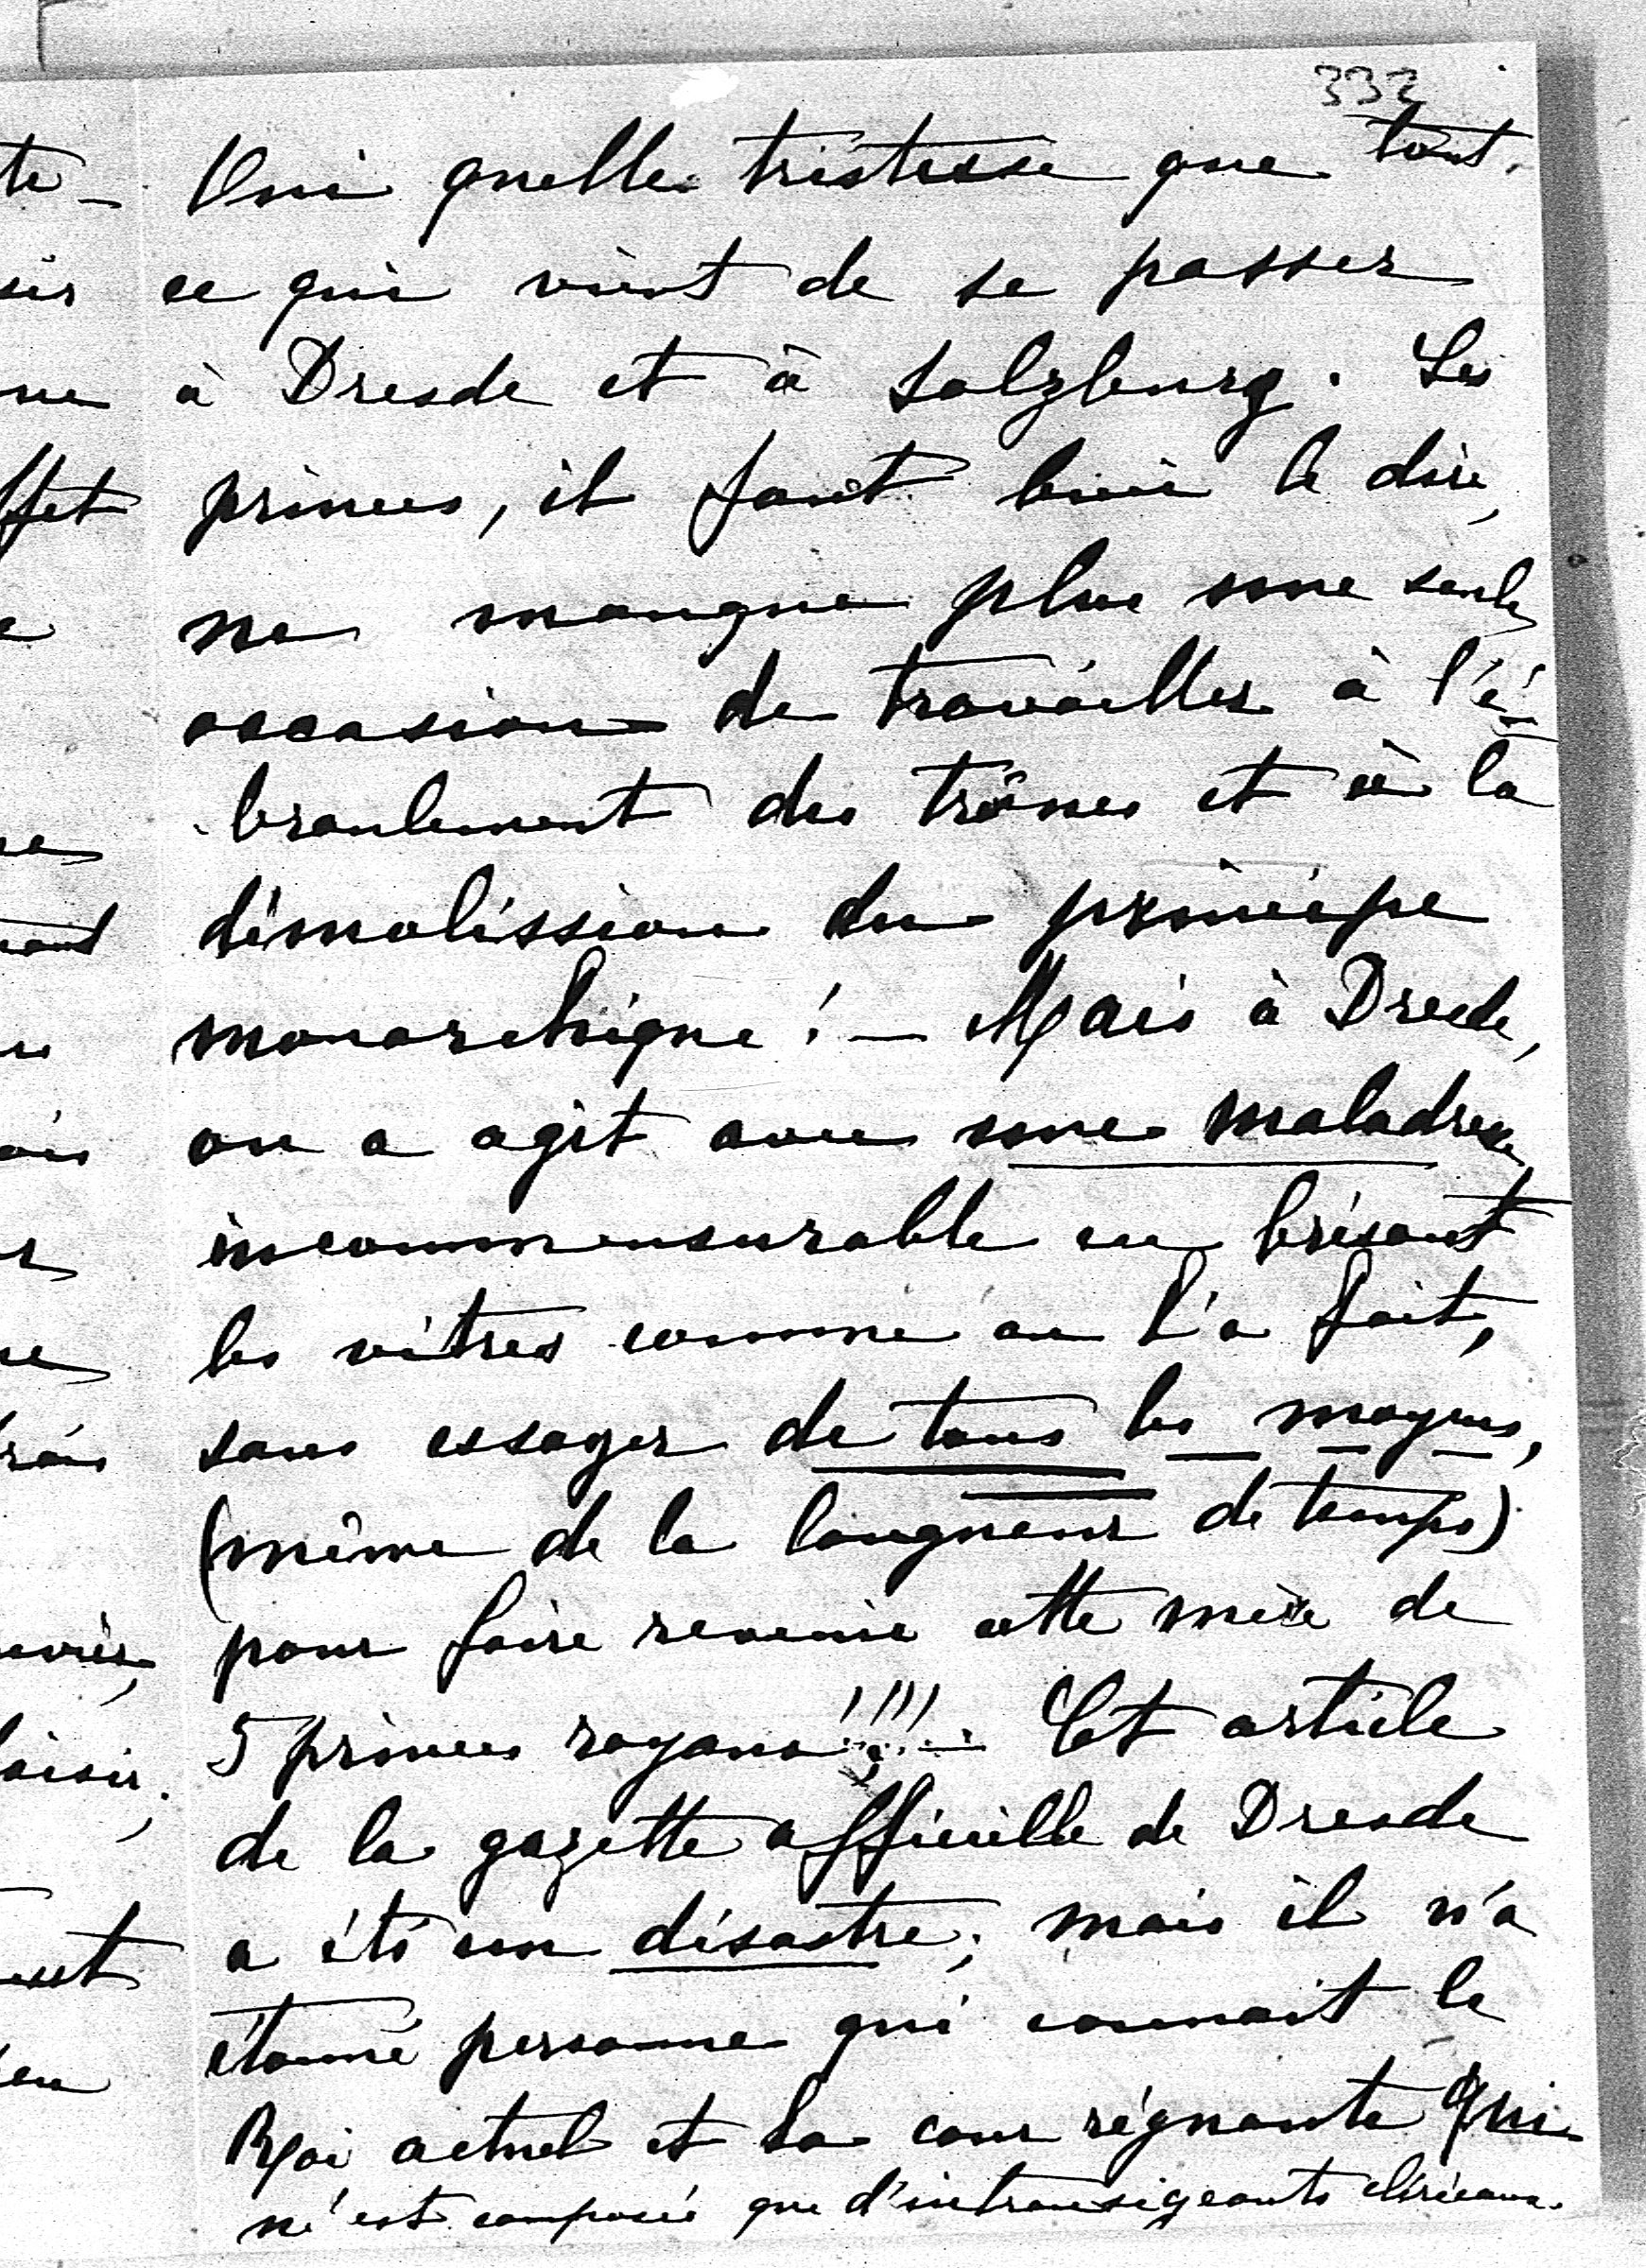 332
Oui quelle tristesse que tout
ce qui vient de se passer
à Dresde et à Salzburg. Les
princes, il faut bien le dire,
ne manque plus une seule
occasion de travailler à l'é-
branlement des trônes et à la
démolission du principe
monarchique! — Mais à Dresde,
on a agit avec une maladresse
incommensurable en brisant
les vitres comme on l'a fait,
sans essayer de tous les moyens,
(même de la longueur de temps)
pour faire revenir cette mère de
5 princes royaux!!!! — Cet article
de la gazette officielle de Dresde
a été un désastre; mais il n'a
étonné personne qui connait le
Roi actuel et sa cour régnante qui
n'est composée que d'intransigeants cléricaux.